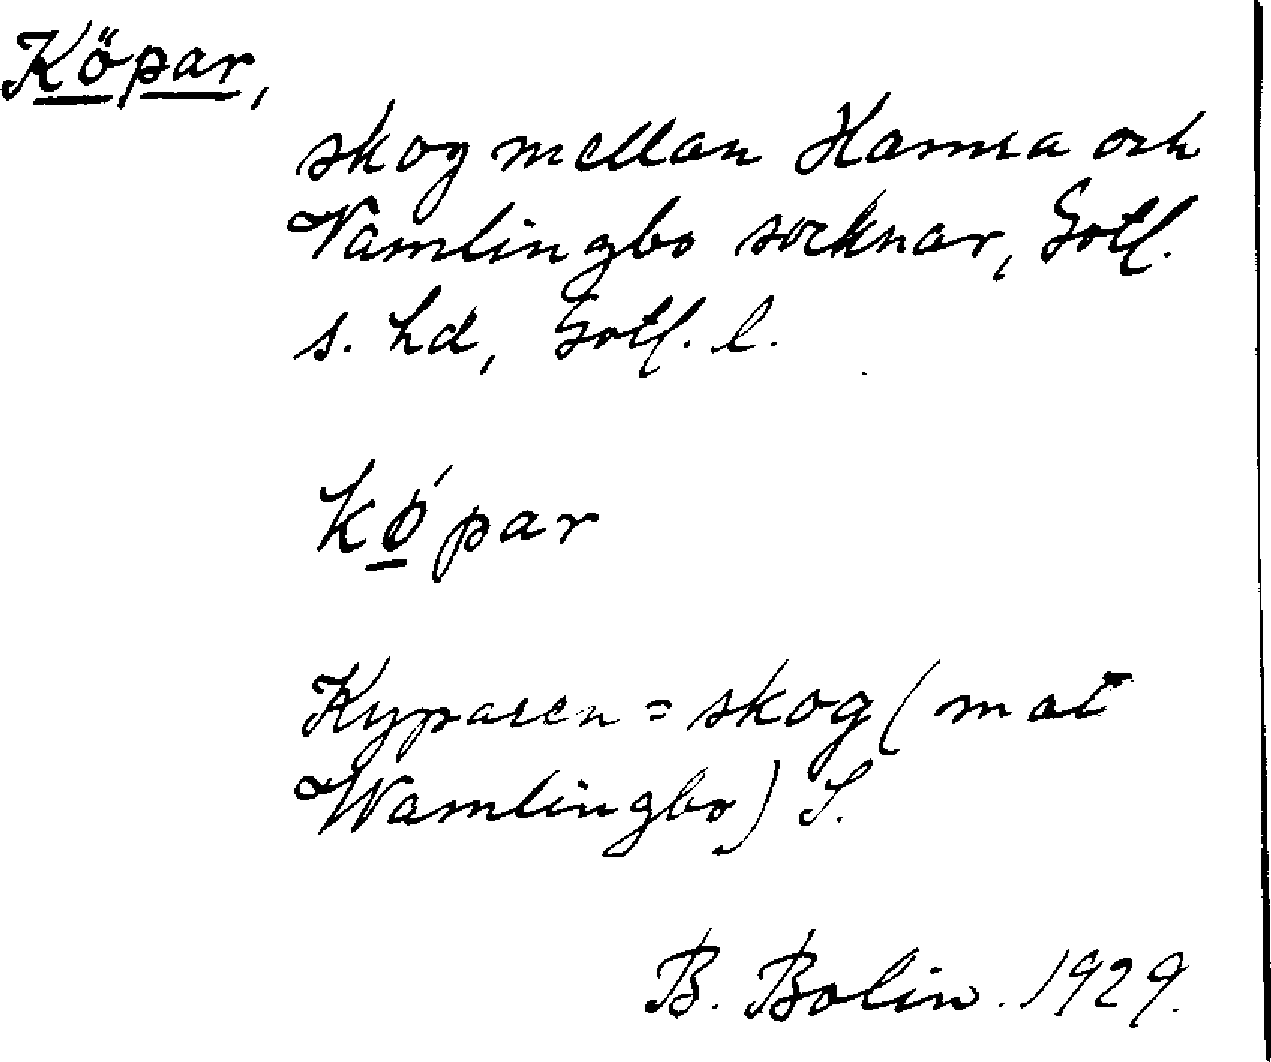 Köpar,
skog mellan Hamra och
Vamlingbo socknar, Gotl.
s. hd, Gotl. l.
kǿpar
Kyparen = skog (mot
Wamlingbo) S.
B. Bolin. 1929.